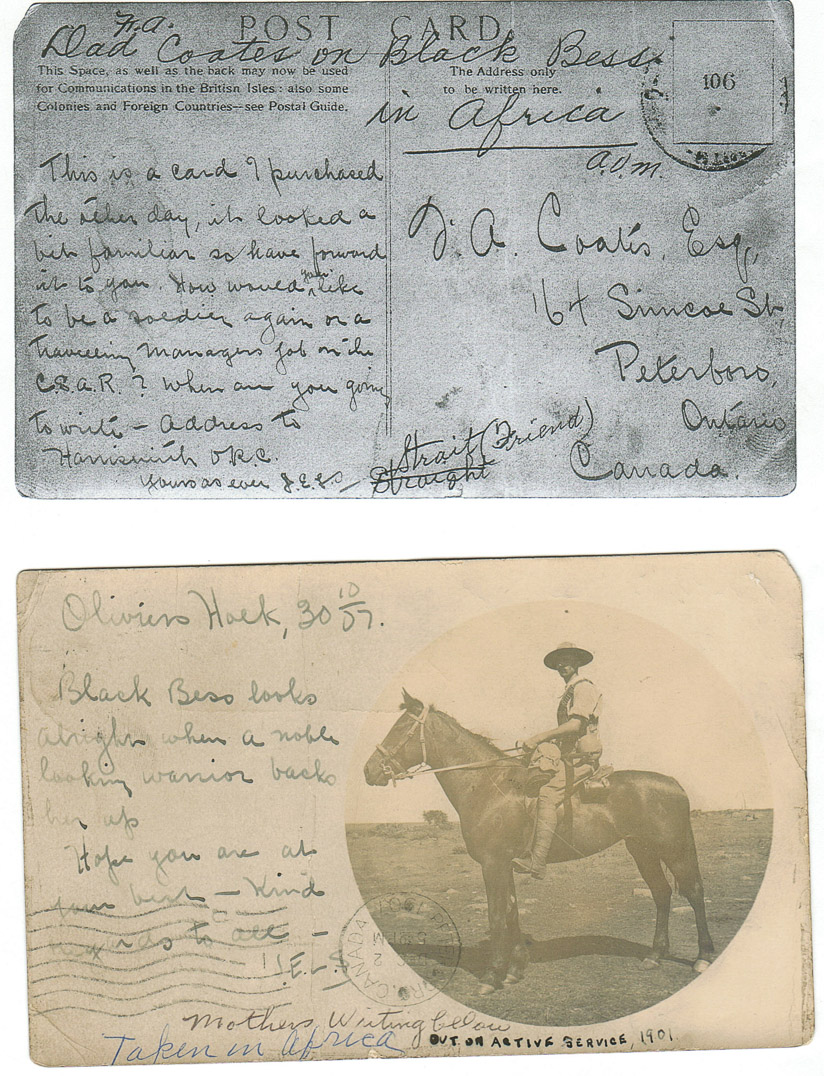 F.A.
POST CARD
Dad Coates on Black Bess
in Africa
This Space, as well as the back may now be used
for Communications in the Britisn Isles : also some
Colonies and Foreign Countries—see Postal Guide.
The Address only
to be written here.
106
A.V.M.
This is a card I purchased
the other day, it looked a
bit familiar so have forward
it to you. How would you like
to be a soldier again or a
travelling Managers job on the
C.S.A.R. ? When are you going
to write – Address to
Harrismith O.R.C.
Yours as ever J.E.L.S –
F. A. Coates, Esq,
164 Simcoe St,
Peterboro,
Ontario
Canada.
Strait (Friend)
Straight
Oliviers Hoek, 30 10/07.
Black Bess looks
alright when a noble
looking warrior backs
her up
Hope you are at
your best – Kind
regards to all –
J.E.L.S
CANADA
Mothers Writing below
Taken in Africa
OUT ON ACTIVE SERVICE, 1901.